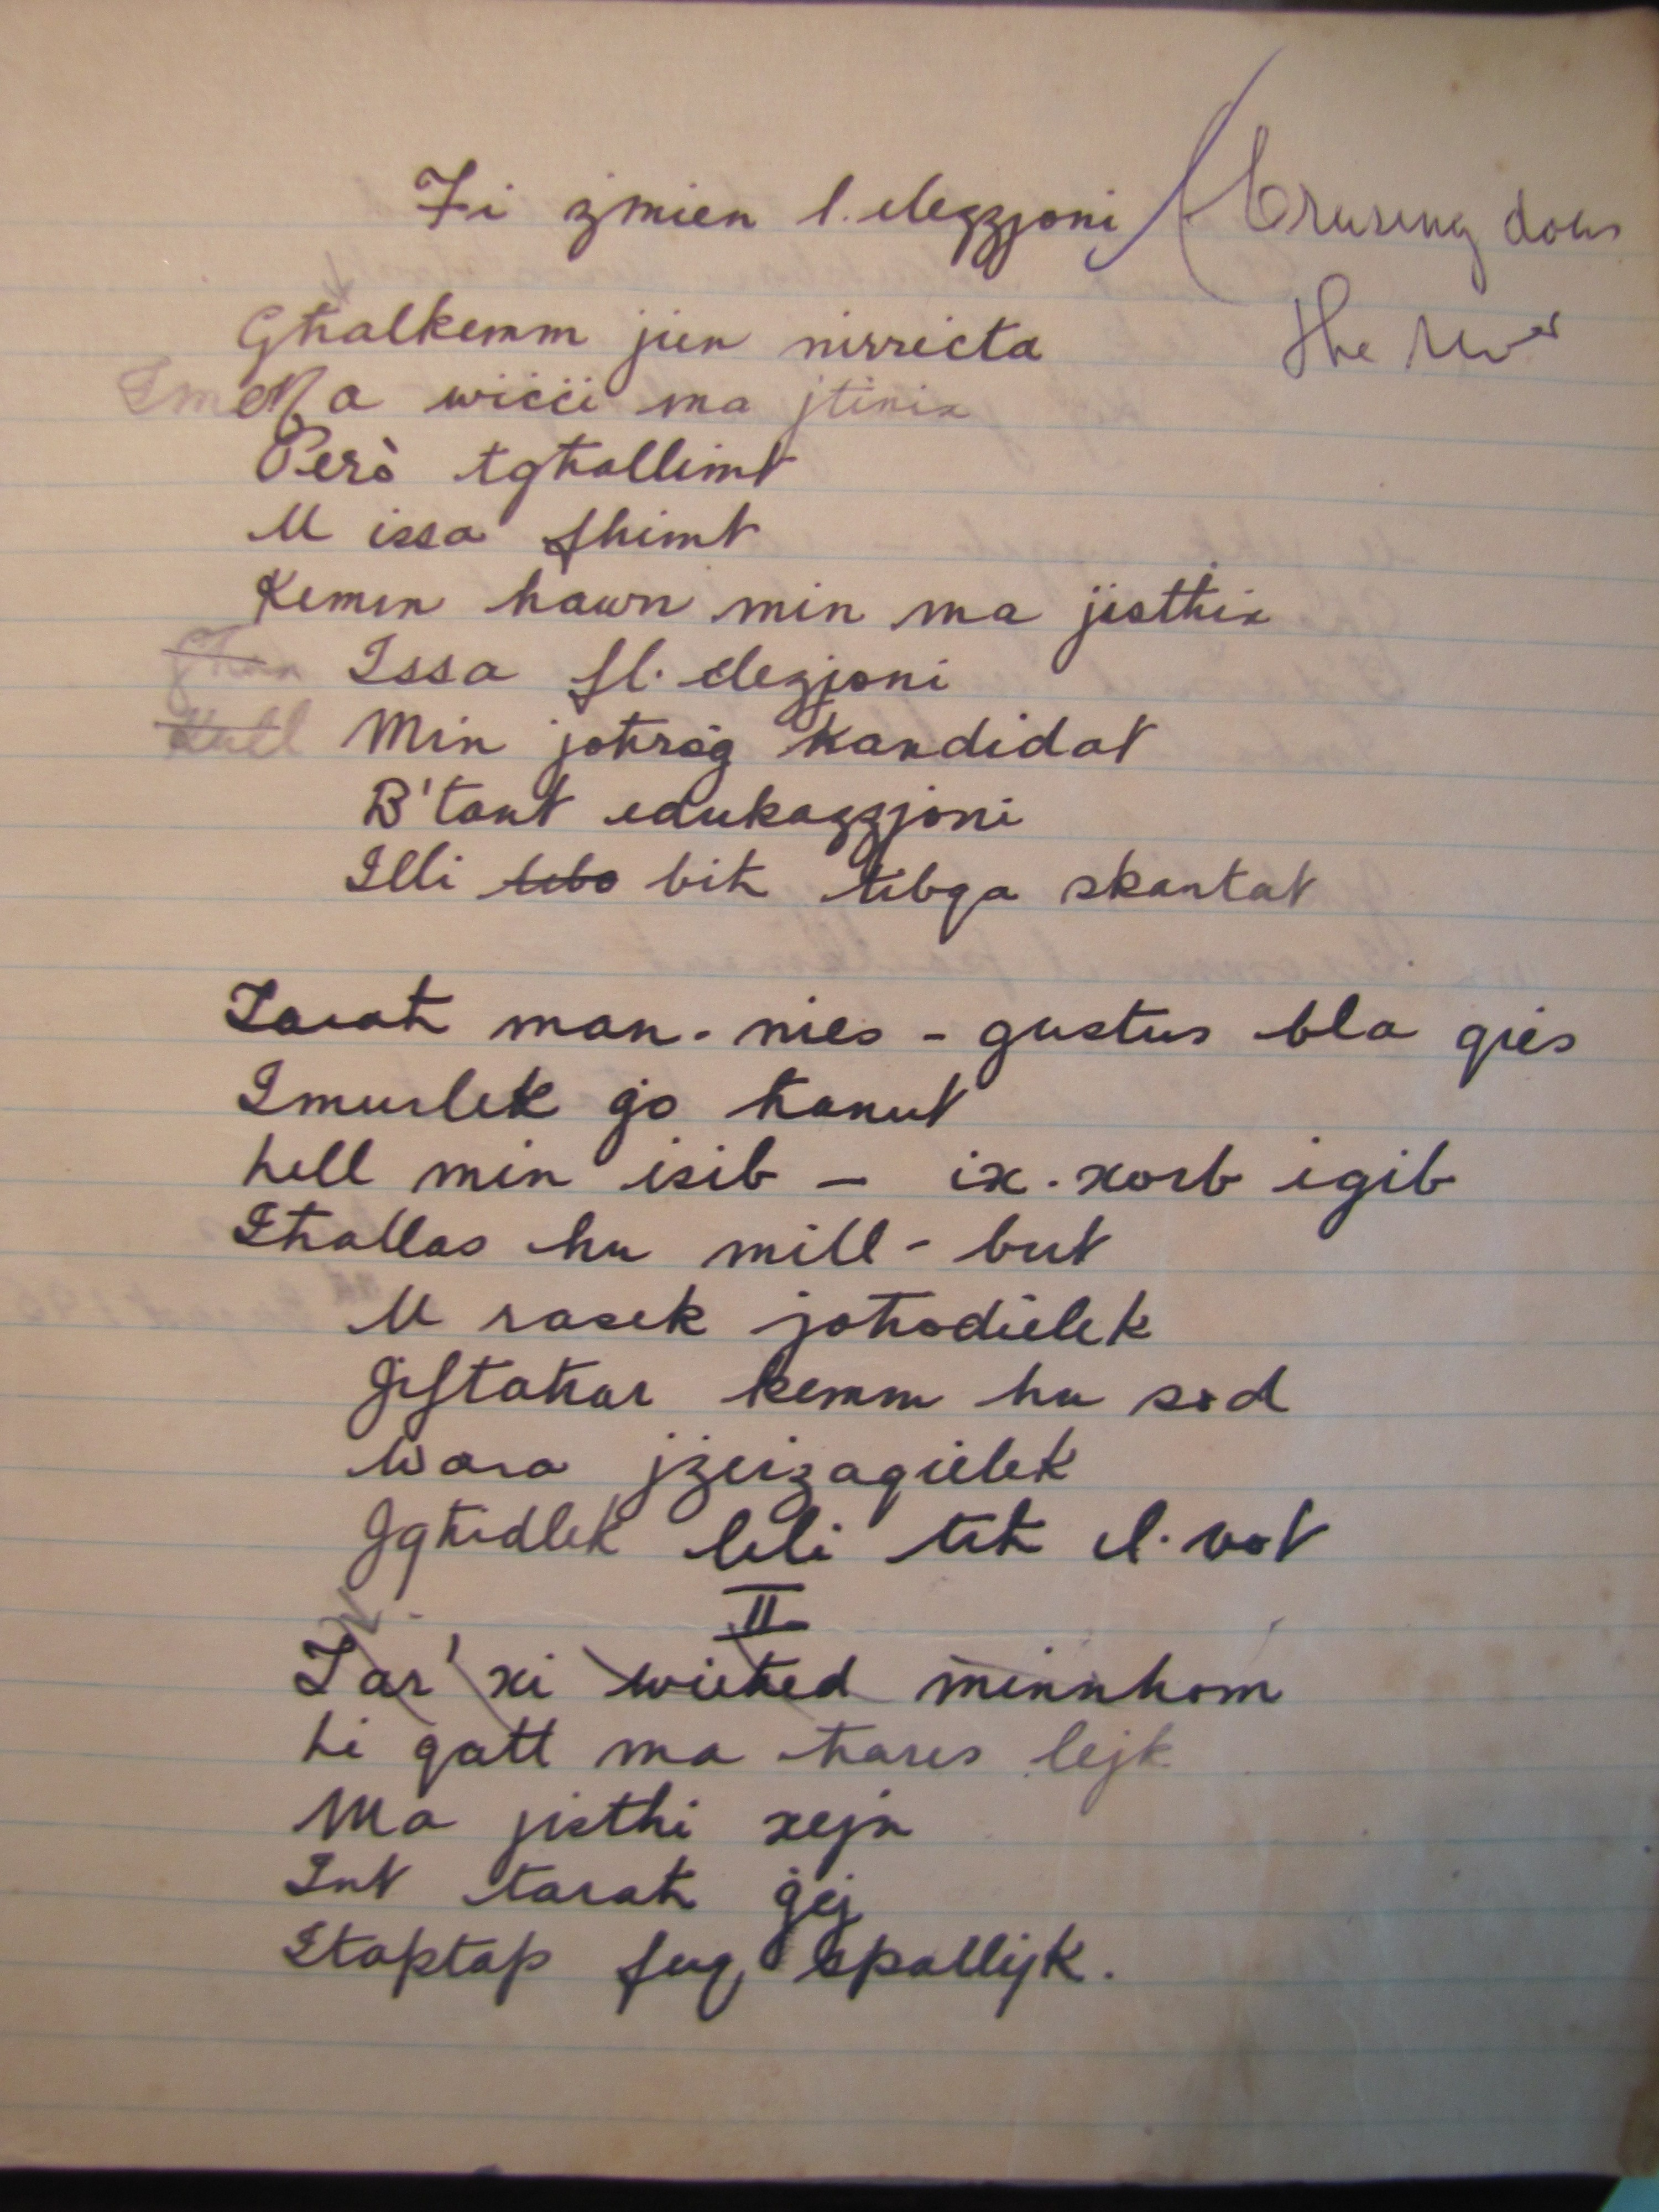 Fi żmien l-elezzjoni (Crusing down
the river
Għalkemm jien nirrieta
Ma wiċċi ma jtinix
Però tgħallimt
U issa fhimt
Kemm hawn min ma jistħix
Issa fl-elezjoni
Min joħroġ kandidat
B'tant edukazzjoni
Illi tibo bih tibqa skantat
Tarah man-nies - gustus bla qies
Imurlek go ħanut
hell min isib - ix-xorb igib
Iħallas hu mill-but
U rasek joħodielek
Jiftaħar kemm hu sod
Wara jżeizaqielek
Jgħidlek leli tih il-vot
II
Tar' xi wieħed minnhom
Li qatt ma ħares lejk
Ma jistħi xejn
Int tarah ġej
Itaptap fuq spallijk.